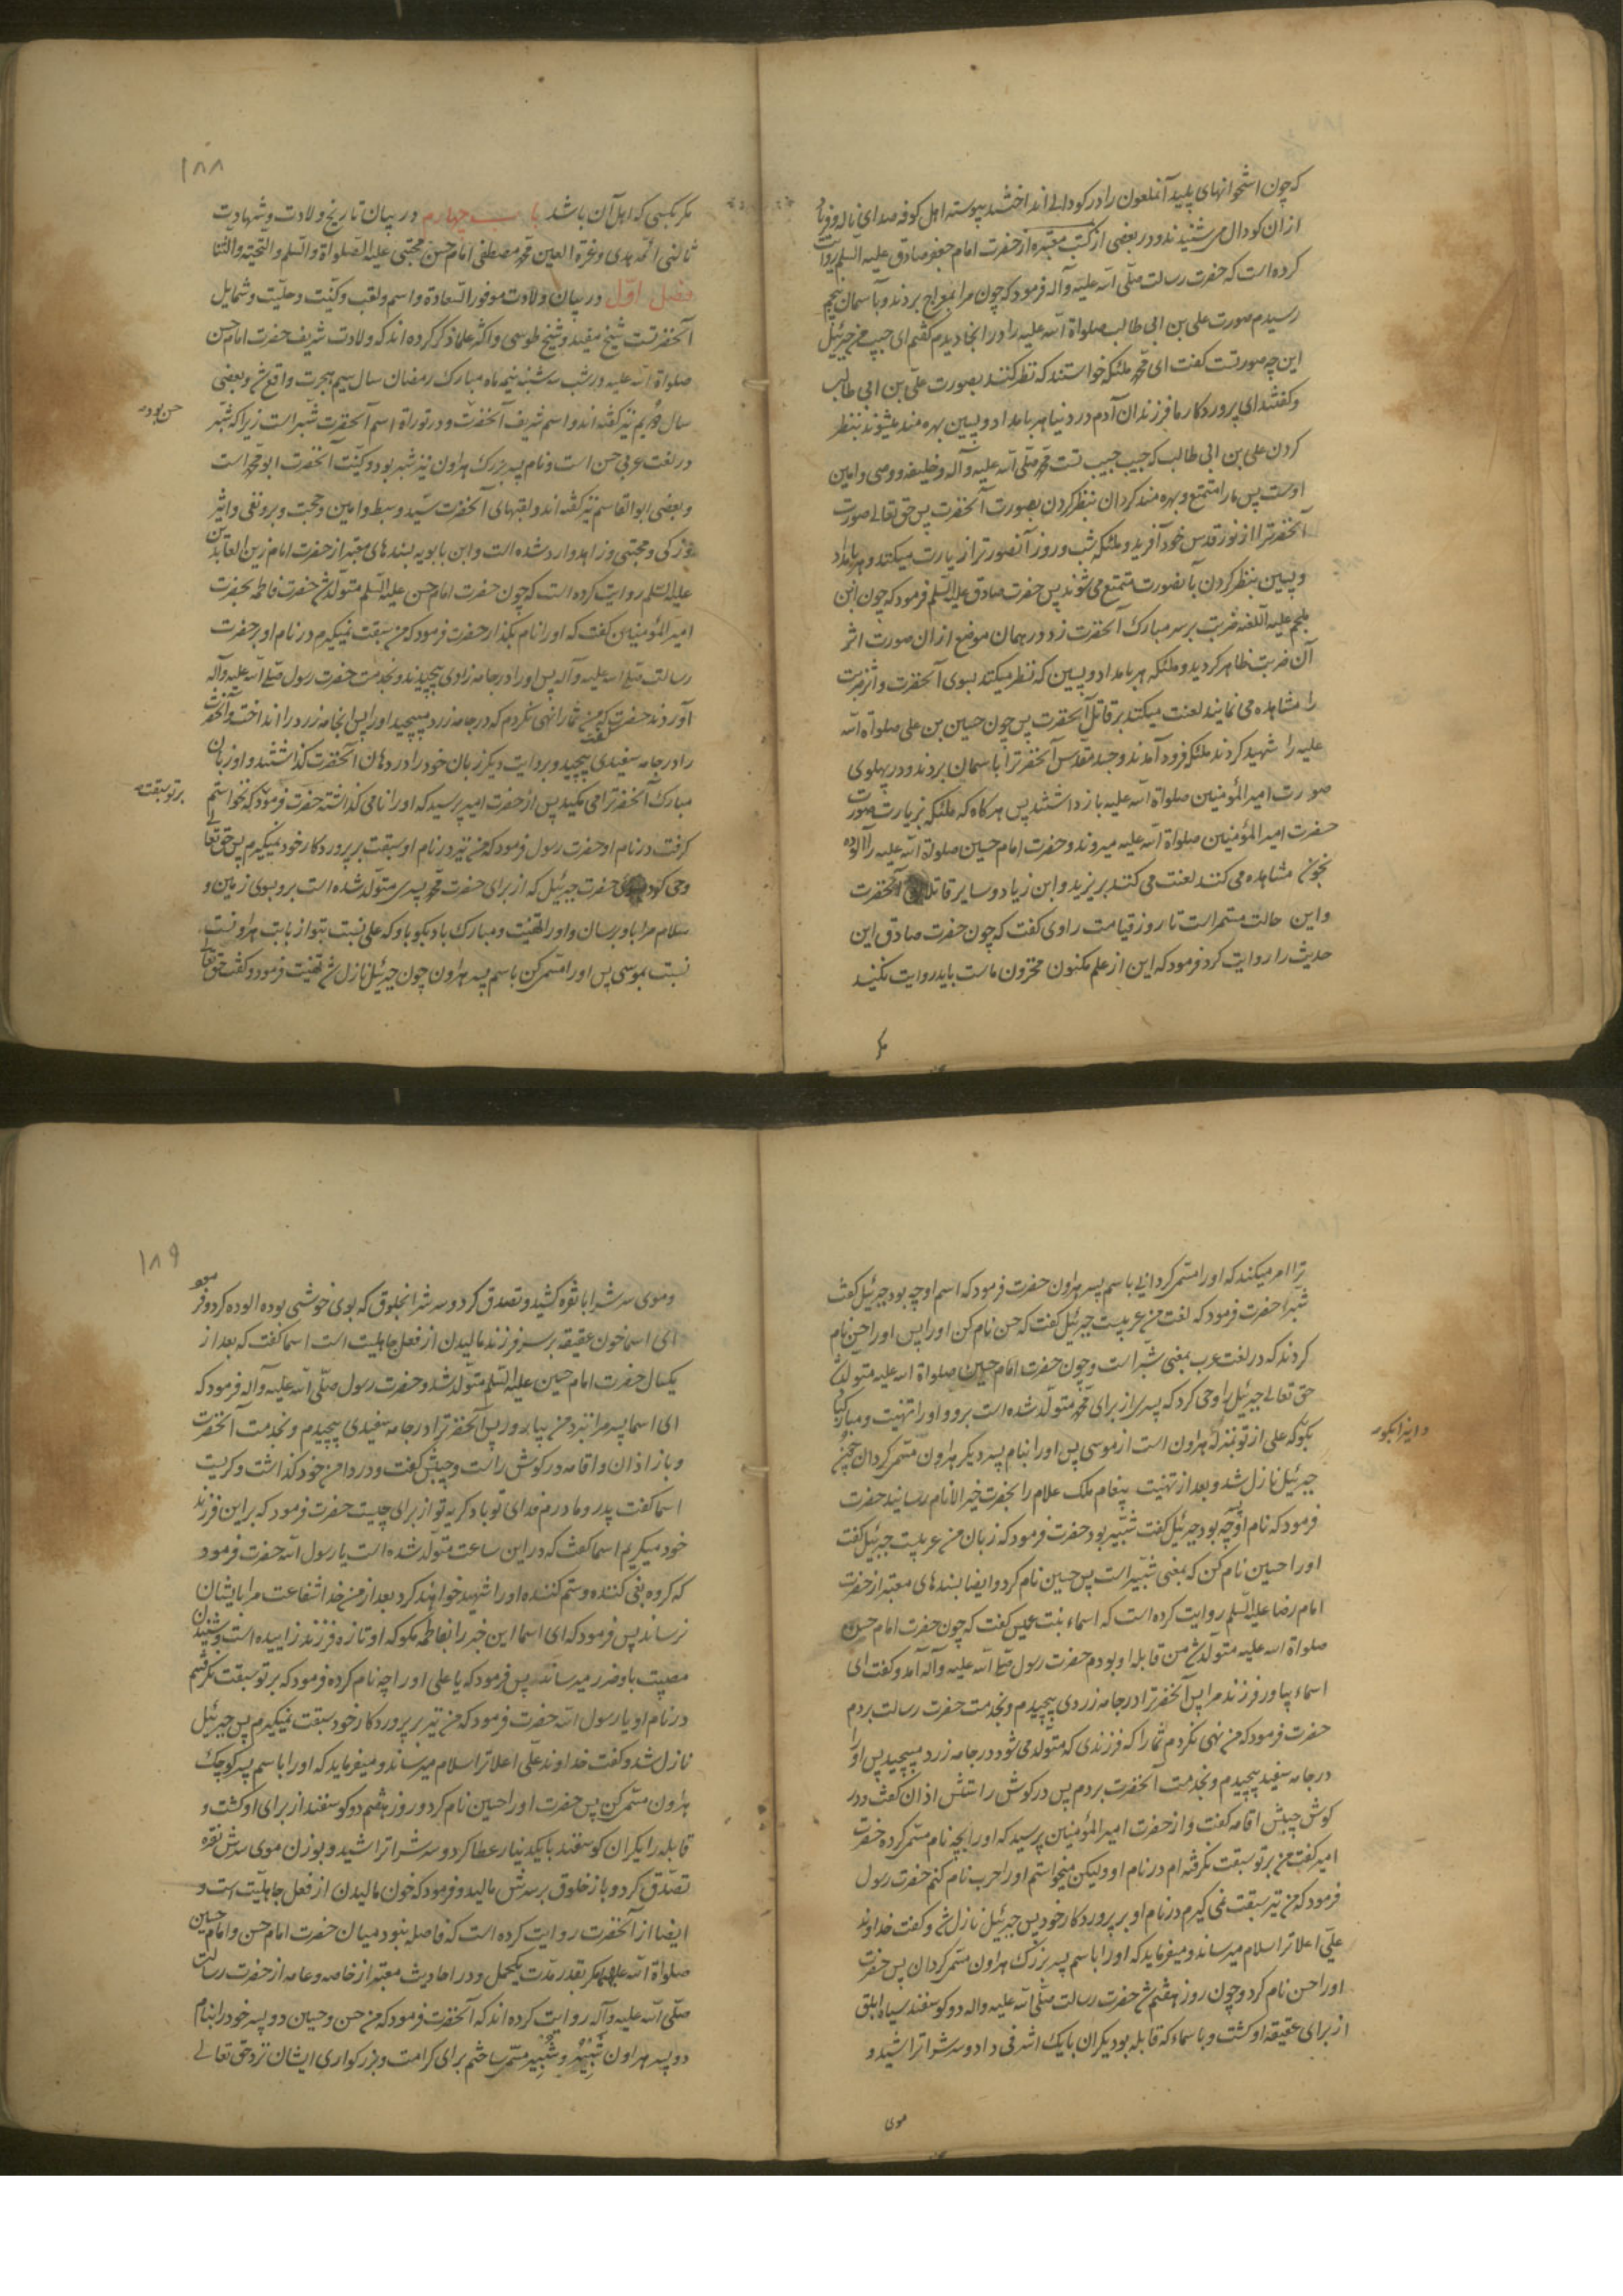 که چون استخوانهای پلید آنملعون را در کودالی انداختند پیوسته اهل کوفه صدای ناله و فریاد
ازان کودال می شنیدند و در بعضی از کتب معتبره از حضرت امام جعفر صادق علیه السلم روایت
کرده است که حضرت رسالت صلّی الله علیه و آله فرمود که چون مرا بمعراج بردند و بآسمان پنجم
رسیدم صورت علی بن ابی طالب صلواة الله علیه را در انجا دیدم گفتم ای حبیب من جبرئیل
این چه صورتست گفت ای محمّد ملئکه خواستند که نظر کنند بصورت علی بن ابی طالب
و گفتند ای پروردکار ما فرزندان آدم در دنیا هر بامداد و پسین بهره مند میشوند بنظر
کردن علی بن ابی طالب که حبیب حبیب تست محمّد صلّی الله علیه و آله و خلیفه و وصی و امین
اوست پس ما را متمتع و بهره مند کردان بنظر کردن بصورت آنحضرت پس حق تعالی صورت
آنحضرترا از نور قدس خود آفرید و ملئکه شب و روز آنصورترا زیارت میکنند و هر بامداد
و پسین بنظر کردن بآنصورت متمتع می شوند پس حضرت صادق علیه السلم فرمود که چون ابن
ملجم علیه اللعنه ضربت بر سر مبارک آنحضرت زد در همان موضع ازان صورت اثر
آن ضربت ظاهر کردید و ملئکه هر بامداد و پسین که نظر میکنند بسوی آنحضرت و اثر ضربت
را مشاهده می نمایند لعنت میکنند بر قاتل آنحضرت پس چون حسین بن علی صلواة الله
علیه را شهید کردند ملئکه فرود آمدند و جسد مقدس آنحضرترا باسمان بردند و در پهلوی
صورت امیر المؤمنین صلواة الله علیه باز داشتند پس هر کاه که ملئکه بزیارت صورت
حضرت امیر المؤمنین صلواة الله علیه میروند و حضرت امام حسین صلواة الله علیه را آلوده
بخون مشاهده می کنند لعنت می کنند بر یزید و ابن زیاد و سایر قاتلان آنحضرت
و این حالت مستمر است تا روز قیامت راوی گفت که چون حضرت صادق این
حدیث را روایت کرد فرمود که این از علم مکنون مخزون ماست باید روایت نکنید
مکر
۱۸۸
مکر بکسی که اهل آن باشد باب چهارم در بیان تاریخ ولادت و شهادت
ثالث ائمّه هدی و قرة العین محمّد مصطفی امام حسن مجتبی علیه الصلواة والسلم والتحیة والثنا
فصل اول در بیان ولادت موفور السعادة و اسم و لقب و کنیت و حلیت و شمایل
آنحضرتست شیخ مفید و شیخ طوسی و اکثر علما ذکر کرده اند که ولادت شریف حضرت امام حسن
صلواة الله علیه در شب سه شنبه نیمه ماه مبارک رمضان سال سیم هجرت واقع شد و بعضی
سال دویم نیز کفته اند و اسم شریف آنحضرت و در توراة اسم آنحضرت شبّر است زیرا که شبّر
حسن بود
در لغت عربی حسن است و نام پسر بزرک هارون نیز شبر بود و کنیت آنحضرت ابو محمّد است
و بعضی ابو القاسم نیز کفته اند و لقبهای آنحضرت سیّد و سبط و امین و حجت و بر و نقی و اثیر
و زکی و مجتبی و زاهد وارد شده است و ابن بابویه بسندهای معتبر از حضرت امام زین العابدین
علیه السلم روایت کرده است که چون حضرت امام حسن علیه السلم متولّد شد حضرت فاطمه بحضرت
امیر المؤمنین کفت که او را نام بکذار حضرت فرمود که من سبقت نمیکیرم در نام او بر حضرت
رسالت صلی الله علیه و آله پس او را در جامه زردی پیچیدند و بخدمت حضرت رسول صلی الله علیه و آله
آوردند حضرت کفت من شما را نهی نکردم که در جامه زرد مپیچید او را پس انجامه زرد را انداخت و آنحضرت
را در جامه سفیدی پیچید و بروایت دیکر زبان خود را در دهان آنحضرت کذاشتند و او زبان
مبارک آنحضرترا می مکید پس از حضرت امیر پرسید که او را نامی کذاشته حضرت فرمود که نخواستم
بر تو سبقت
کرفت در نام او حضرت رسول فرمود که من نیز در نام او سبقت بر پروردکار خود نمیکیرم پس حق تعالی
وحی کرد بسوی حضرت جبرئیل که از برای حضرت محمّد پسری متولّد شده است برو بسوی زمین و
سلام مرا باو برسان و او را تهنیت و مبارک باد بکو باو که علی نسبت بتو از بابت هارونست
نسبت بموسی پس او را مسمّی کن باسم پسر هارون چون جبرئیل نازل شد تهنیت فرمود و کفت حق تعالی
ترا امر میکند که او را مسمّی کردانی باسم پسر هارون حضرت فرمود که اسم او چه بود جبرئیل کفت
شبّر حضرت فرمود که لغت من عربیست جبرئیل کفت که حسن نام کن او را پس او را حسن نام
کردند که در لغت عرب بمعنی شبّر است و چون حضرت امام حسین صلواة الله علیه متولّد شد
حق تعالی جبرئیل را وحی کرد که پسری از برای محمّد متولّد شده است برو و او را تهنیت و مبارکباد
بکو که علی از تو بمنزله هارون است از موسی پس او را بنام پسر دیکر هارون مسمّی کردان چون
و اینرا بکو
جبرئیل نازل شد و بعد از تهنیت پیغام ملک علام را بحضرت خیر الانام رسانید حضرت
فرمود که نام او چه بود جبرئیل کفت شبّیر بود حضرت فرمود که زبان من عربیست جبرئیل کفت
او را حسین نام کن که بمعنی شبّیر است پس حسین نام کرد و ایضا بسندهای معتبر از حضرت
امام رضا علیه السلم روایت کرده است که اسماء بنت عمیس کفت که چون حضرت امام حسن
صلواة الله علیه متولّد شد من قابله او بودم حضرت رسول صلی الله علیه و آله آمد و کفت ای
اسماء بیاور فرزند مرا پس آنحضرترا در جامه زردی پیچیدم و بخدمت حضرت رسالت بردم
حضرت فرمود که من نهی نکردم شما را که فرزندی که متولّد می شود در جامه زرد مپیچید پس او را
در جامه سفید پیچیدم و بخدمت آنحضرت بردم پس در کوش راستش اذان کفت و در
کوش چپش اقامه کفت و از حضرت امیر المؤمنین پرسید که او را بچه نام مسمّی کرده حضرت
امیر کفت من بر تو سبقت نکرفته ام در نام او ولیکن میخواستم او را حرب نام کنم حضرت رسول
فرمود که من نیز سبقت نمی کیرم در نام او بر پروردکار خود پس جبرئیل نازل شد و کفت خداوند
علی اعلا ترا سلام میرساند و میفرماید که او را باسم پسر بزرک هارون مسمّی کردان پس حضرت
او را حسن نام کرد و چون روز هفتم شد حضرت رسالت صلّی الله علیه و اله دو کوسفند سیاه ابلق
از برای عقیقه او کشت و باسماء که قابله بود یکران با یک اشرفی داد و سر شرا تراشید و
موی
۱۸۹
و موی سر شرا با نقره کشید و تصدق کرد و سر شرا بخلوق که بوی خوشی بوده الوده کرد و فرمود
ای اسما خون عقیقه بر سر فرزند مالیدن از فعل جاهلیت است اسما کفت که بعد از
یکسال حضرت امام حسین علیه السلم متولّد شد و حضرت رسول صلّی الله علیه و آله فرمود که
ای اسما پسر مرا نزد من بیاور پس آنحضرترا در جامه سفیدی پیچیدم و بخدمت آنحضرت
و باز اذان و اقامه در کوش راست و چپش کفت و در دامن خود کذاشت و کریست
اسما کفت پدر و مادرم فدای تو باد کریه تو از برای چیست حضرت فرمود که براین فرزند
خود میکریم اسما کفت که در این ساعت متولّد شده است یا رسول الله حضرت فرمود
که کروه بغی کننده و ستم کننده او را شهید خواهند کرد بعد از من خدا شفاعت مرا بایشان
نرساند پس فرمود که ای اسما این خبر را بفاطمه مکو که او تازه فرزند زاییده است و شنیدن
مصیبت باو ضرر میرساند پس فرمود که یا علی او را چه نام کرده فرمود که بر تو سبقت نکرفتم
در نام او یا رسول الله حضرت فرمود که من نیز بر پروردکار خود سبقت نمیکیرم پس جبرئیل
نازل شد و کفت خداوند علی اعلا ترا سلام میرساند و میفرماید که او را باسم پسر کوچک
هارون مسمّی کن پس حضرت او را حسین نام کرد و روز هفتم دو کوسفند از برای او کشت و
قابله را یکران کوسفند با یکدینار عطا کرد و سر شرا تراشید و بوزن موی سرش نقره
تصدّق کرد و باز خلوق بر سرش مالید و فرمود که خون مالیدن از فعل جاهلیت است و
ایضا از آنحضرت روایت کرده است که فاصله نبود میان حضرت امام حسن و امام حسین
صلواة الله علیهما مکر بقدر مدّت یکحمل و در احادیث معتبر از خاصه و عامه از حضرت رسالت
صلّی الله علیه و آله روایت کرده اند که آنحضرت فرمود که من حسن و حسین دو پسر خود را بنام
دو پسر هارون شبّر و شبّیر مسمّی ساختم برای کرامت و بزرکواری ایشان نزد حق تعالی